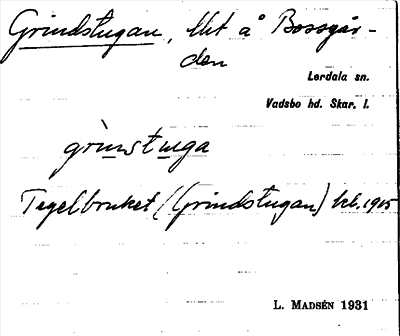 Grindstugan, Uet å Bossgår-
den
Lerdala sn.
Vadsbo hd. Skar. l.
grìnstuga
Tegelbruket (Grindstugan) hcl. 1915
L. Madsén 1931